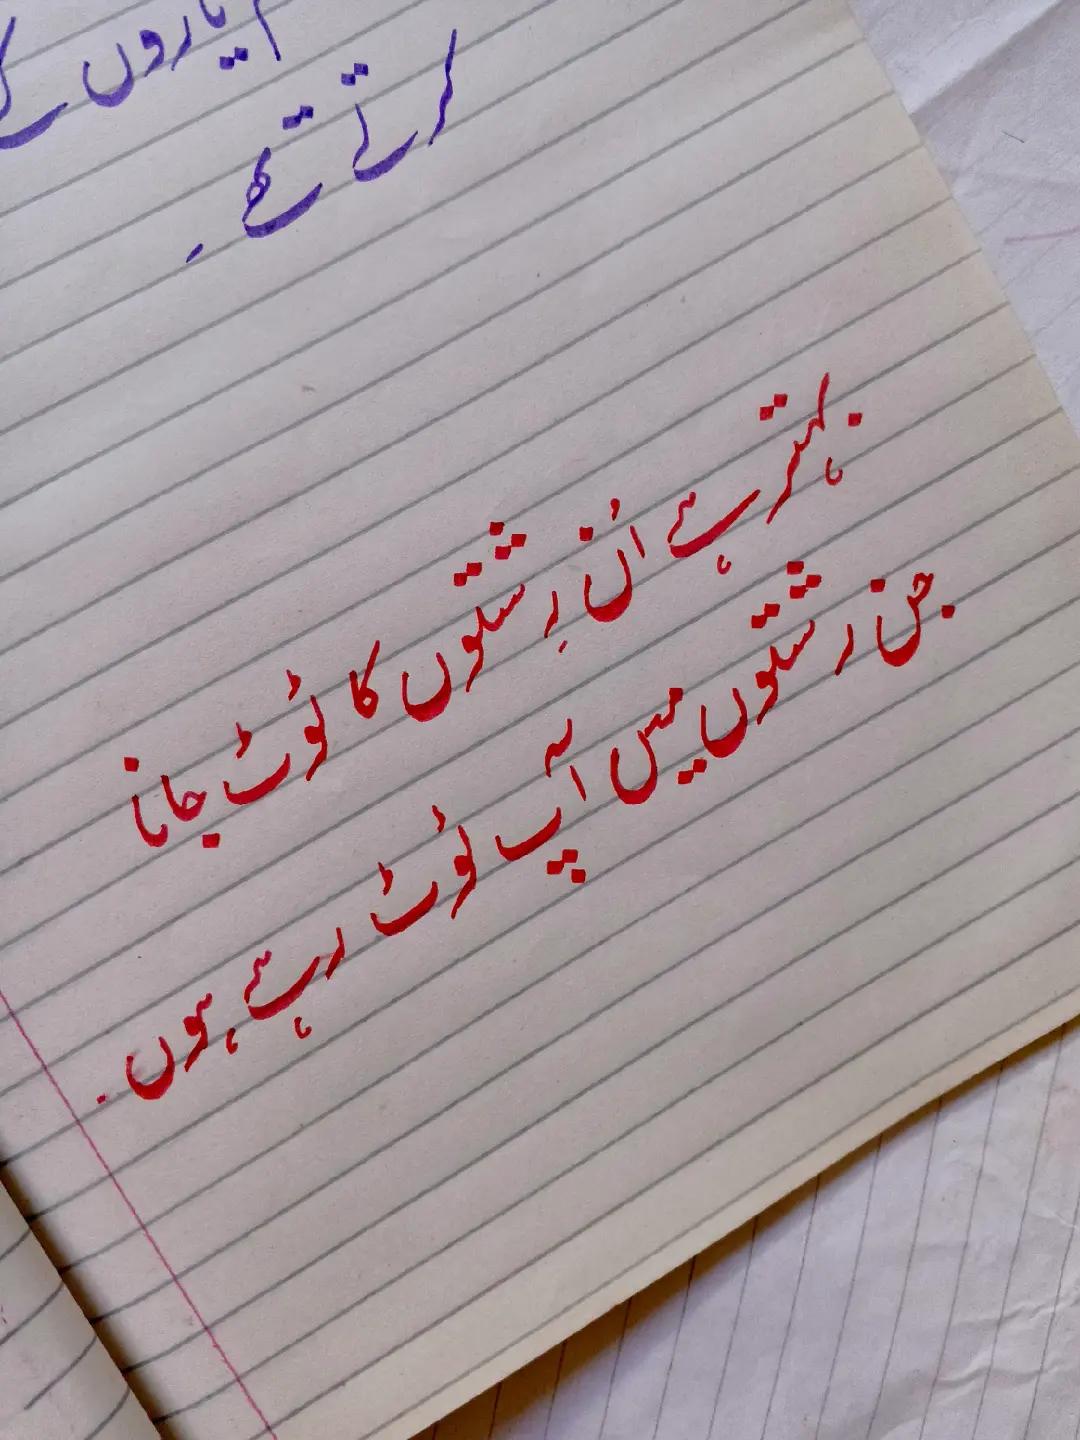 یاروں کے
کرتے تھے ۔
بہتر ہے اُن رِشتوں کا ٹوٹ جانا
جن رشتوں میں آپ ٹوٹ رہے ہوں ۔